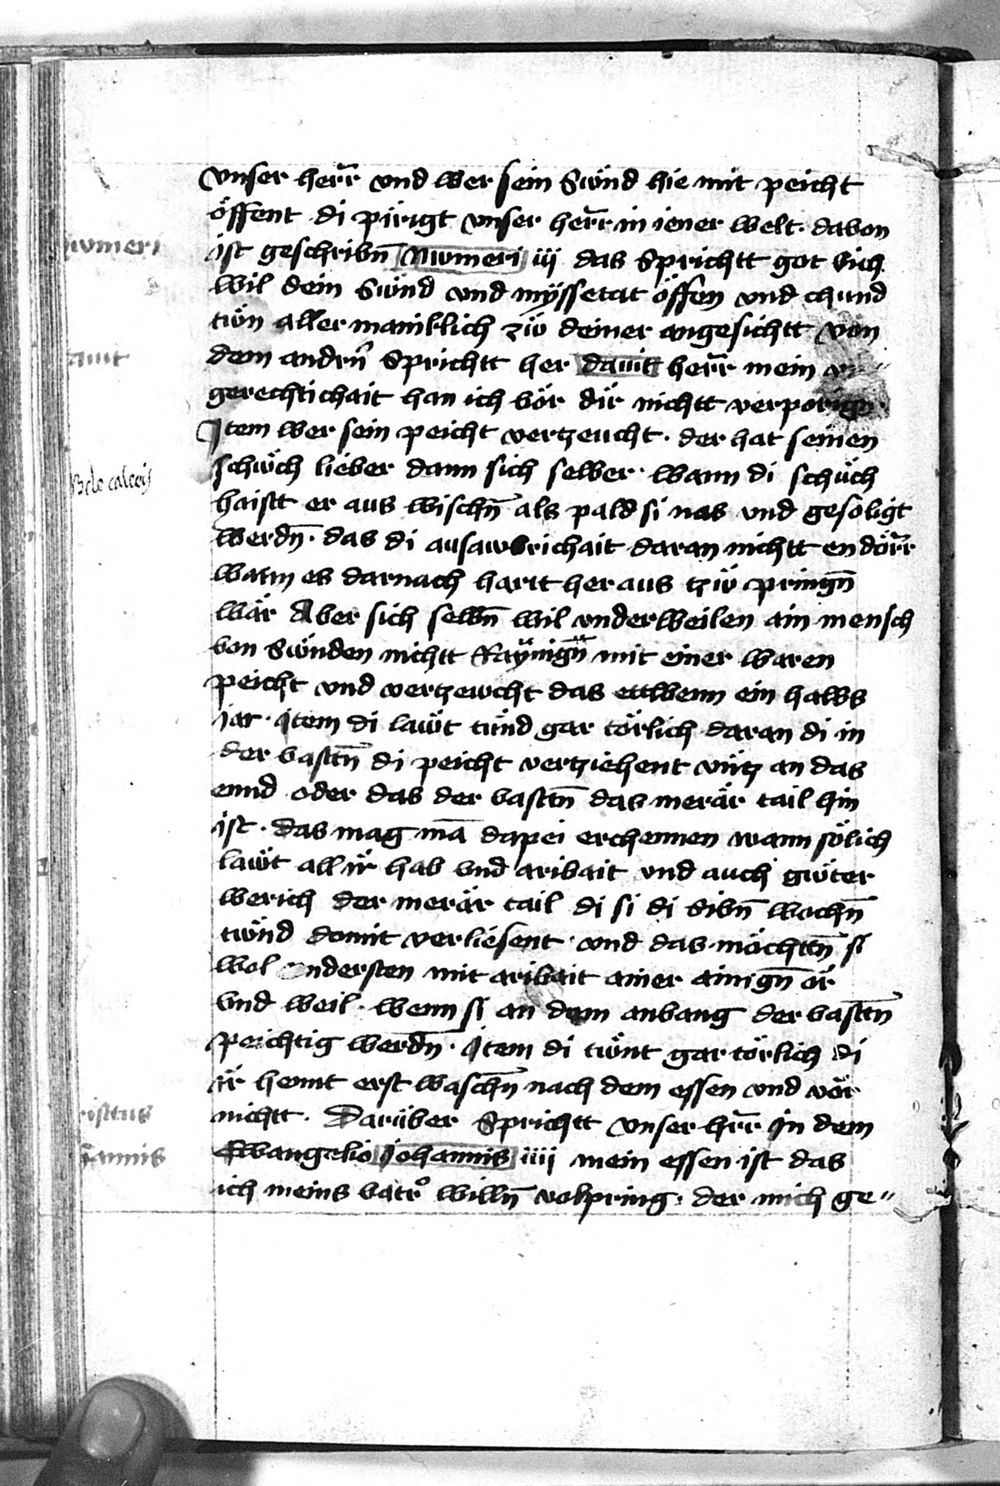 vnser herr̄ vnd wer sein swönd hie mit peicht
öffent di pürigt vnser herr̄ in iener welt · davon
ist geschribn̄ Nwmeri iij das sprichtt got Eich
wil dein swönd vnd myssetat öffen vnd chund
twön aller maniklich zw̋ deiner angesichtt von
dem andrn̄ sprichtt her dauit herr̄ mein vn=
gerechtichait han ich vör dir nichtt verporign
Item wer sein peicht vertzeucht · der hat seinen
schüch lieber dann sich selber · wann di schüch
haistt er aus wischn̄ als pald si nas vnd gesöligt
werdn̄ · das di ausawbrichait daran nichtt en dörr̄
wann es darnach hartt her aus tzw̋ pringn̄
wär Aber sich selbn̄ wil vnderweilen ain mensch
von swönden nichtt Raynign̄ mit einer waren
peicht vnd vertzewcht das ettwenn ein halbs
iar · Item di lawt tünd gar törlich daran di in
der vastn̄ di peicht vertziehent vntz an das
ennd oder das der vastn̄ das merär tail hin
ist · das mag mā dapei erchennen wann sölich
lawt all ir hab vnd aribait vnd auch gwöter
werich der merär tail di si di sibn̄ wochn̄
twönd domit verliesent · vnd das möchttn̄ si
wol ndersten mit aribait ainer ainign̄ ör
vnd weil · wenn si an dem anvang der vastn̄
peichtig werdn̄ · Item di twönt gar törlich di
ir hennt erst waschn̄ nach dem essen vnd vör
nichtt · Darüber sprichtt vnser hrr̄ in dem
Ewangelio Johannis iiij mein essen ist das
ich meins vatrs willn̄ volpring · der mich ge=
nwmeri
auit
de calceis
risttus
hannis